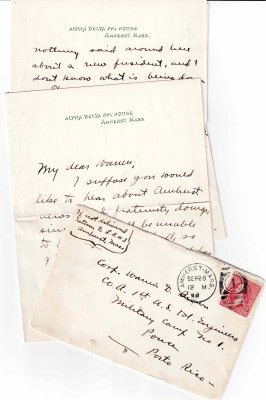 ALPHA DELTA PHI HOUSE
AMHERST MASS.
nothing said around here
about a new president, and I
don't know what is being don
ALPHA DELTA PHI HOUSE
AMHERST MASS.
My dear Warren,
I suppose you would
like to hear about Amherst
news & fraternity doings,
be unable
so
If not delivered
return to
Amherst Mass.
AMHERST MASS.
SEP 26
12 M
Corp. Warren D.
Co. A 1st U.S. Vol. Engineers
Military Camp No 1.
Ponce
Porto Rico